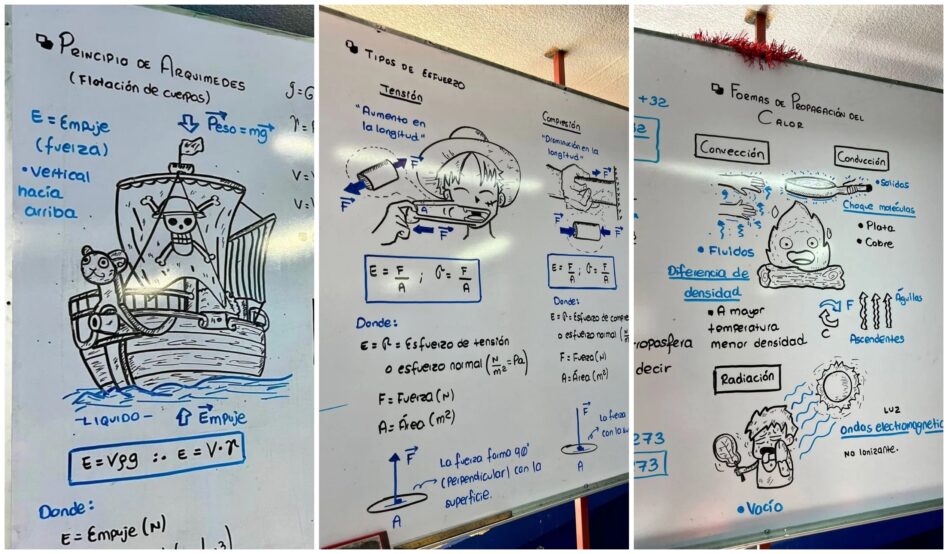 PRINCIPIO DE ARQUIMEDES
(Flotación de cuerpos)
E = Empuje
(fuerza)
• Vertical
hacía
arriba
Peso = mg
g = G
V =
V =
- LIQUIDO -
Empuje
E = Vρg ∴ E = V·γ
Donde:
E = Empuje (N)
TIPOS DE ESFUERZO
Tensión
"Aumento en
la longitud"
F
F
A
F
F
E = F/A ; σ = F/A
Donde:
E = σ = Esfuerzo de tensión
o esfuerzo normal (N/m² = Pa)
F = Fuerza (N)
A = Área (m²)
F
La fuerza forma 90°
(perpendicular) con la
superficie.
A
Compresión
"Disminución en la
longitud"
F
F
E = F/A ; σ = F/A
Donde:
E = σ = Esfuerzo de compre
o esfuerzo normal (N/m
F = Fuerza (N)
A = Área (m²)
F
La fuerza
con la su
A
+32
32
FORMAS DE PROPAGACIÓN DEL
CALOR
Convección
• Fluidos
Diferencia de
densidad
• A mayor
temperatura
menor densidad
Conducción
• Solidos
Choque moléculas
• Plata
• Cobre
F
C
Águilas
Ascendentes
roposfera
decir
273
73
Radiación
LUZ
ondas electromagnetic
NO Ionizante.
• Vacío